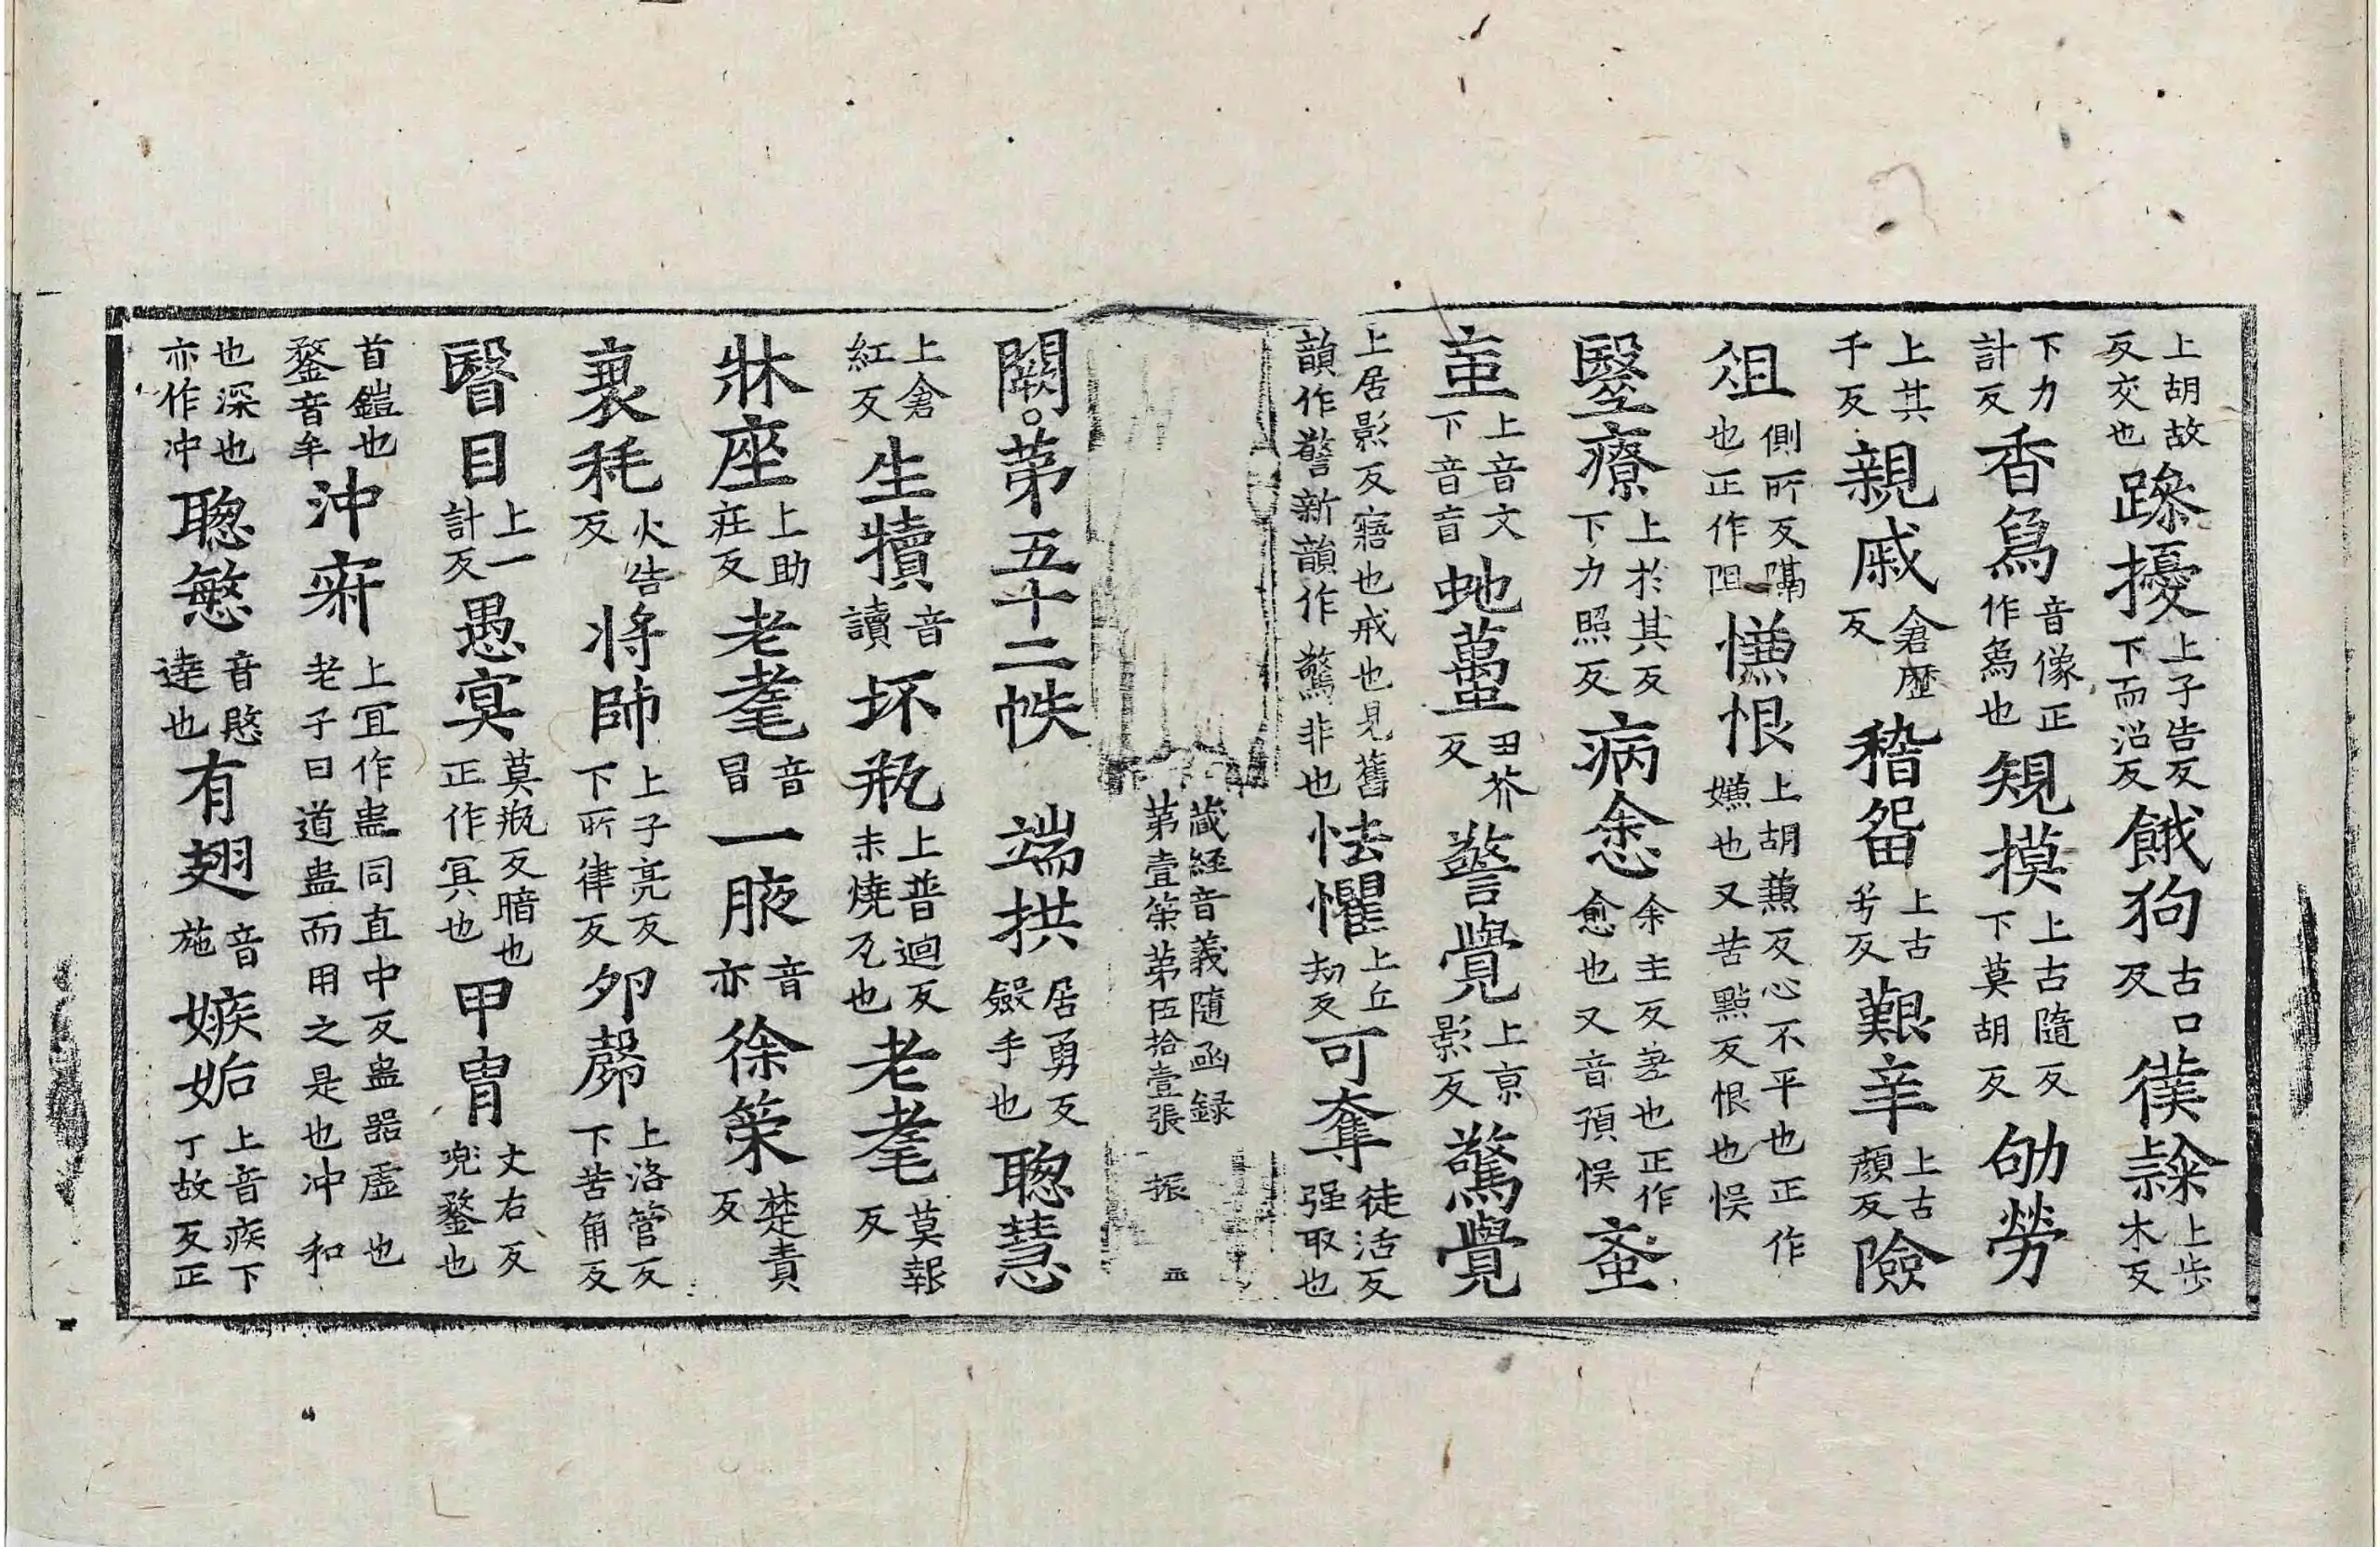 上胡故反交也躁擾上子告反下而沼反餓狗古口反僕隸上步木反
下力計反香爲音像正作爲也規摸上古隨反下莫胡反劬勞
上其千反親戚倉歷反稽留上古兮反艱辛上古顔反險
俎側所反隔也正作阻慊恨上胡兼反心不平也正作嫌也又苦點反恨也悮
毉療上於其反下力照反病愈余主反差也正作愈也又音預悮蚉
䖟上音文下音盲虵蠆丑芥反警覺上京影反驚覺
上居影反寤也戒也見舊韻作警新韻作驚非也怯懼上丘劫反可奪徒活反强取也
藏經音義隨函録
第壹筞第伍拾壹張 振
闕。第五十二帙 端拱居勇反斂手也聦慧
上倉紅反生犢音讀坏瓶上普迴反未燒瓦也老耄莫報反
牀座上助莊反老耄音冒一腋音亦徐策楚責反
衰秏火告反将帥上子亮反下所律反卵㲉上洛管反下苦角反
瞖目上一計反愚㝠莫瓶反暗也正作冥也甲冑丈右反兜鍪也
首鎧也鍪音牟沖寂上冝作盅同直中反盅器虛也老子曰道盅而用之是也冲和
也深也亦作冲聦慜音愍達也有翅音施嫉妬上音疾下丁故反正